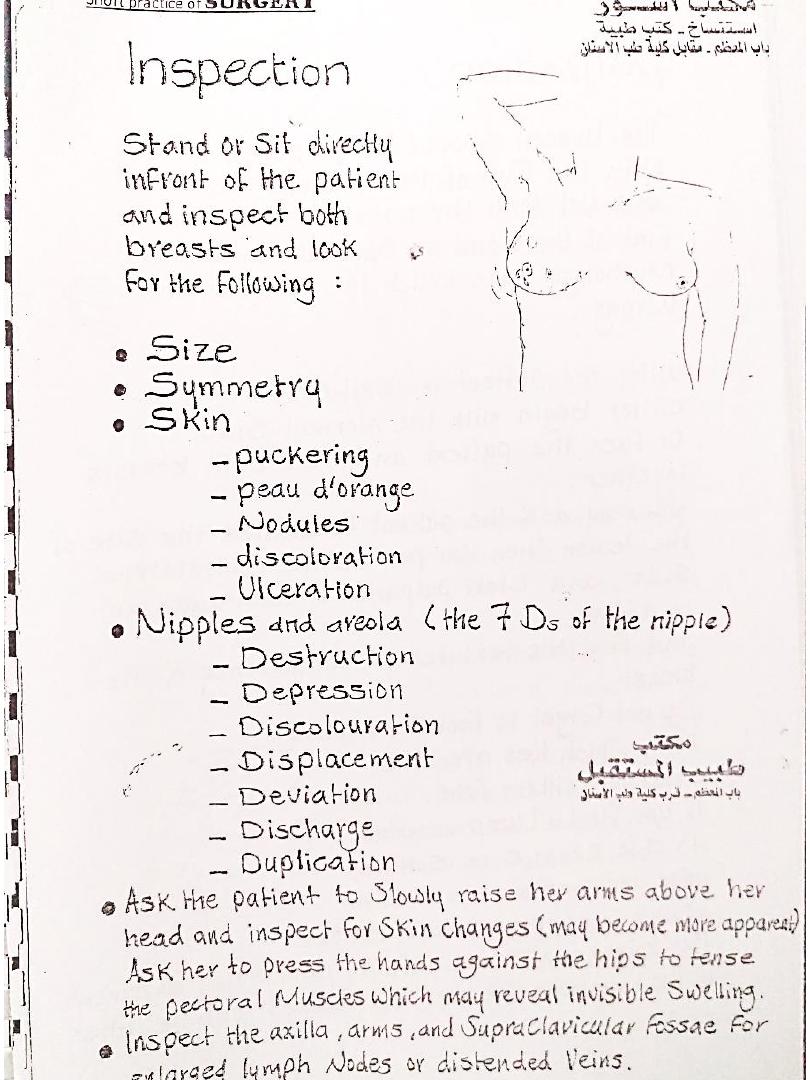 Short practice of SURGERY
استنساخ - كتب طبية
باب المعظم - مقابل كلية طب الاسنان
Inspection
Stand or Sit directly
infront of the patient
and inspect both
breasts and look
For the Following :
• Size
• Symmetry
• Skin
– puckering
– peau d'orange
– Nodules
– discoloration
– Ulceration
• Nipples and areola (the 7 Ds of the nipple)
– Destruction
– Depression
– Discolouration
– Displacement
– Deviation
– Discharge
– Duplication
مكتب
طبيب المستقبل
باب المعظم - قرب كلية طب الاسنان
• Ask the patient to Slowly raise her arms above her
head and inspect for Skin changes (may become more apparent)
Ask her to press the hands against the hips to tense
the pectoral Muscles which may reveal invisible Swelling.
• Inspect the axilla , arms , and SupraClavicular Fossae For
enlarged lymph Nodes or distended Veins.